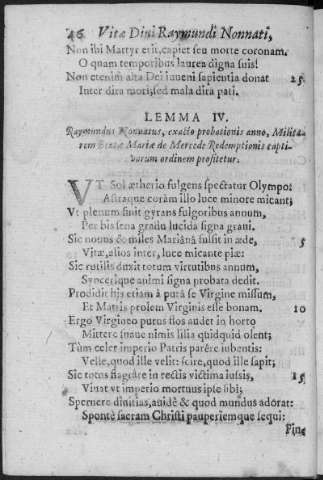 46 Vitæ Diui Raymundi Nonnati,
Non ibi Martyr erit, capiet seu morte coronam.
O quam temporibus laurea digna suis!
Non etenim alta Dei iuueni sapientia donat 25
Inter dira mori, sed mala dira pati.
LEMMA IV.
Raymundus Nonnatus, exacto probationis anno, Milita-
rem Beatæ Mariæ de Mercede Redemptionis capti-
uorum ordinem profitetur.
VT Sol ætherio fulgens spectatur Olympo:
Astraque coràm illo luce minore micant;
Vt plenum finit gyrans fulgoribus annum,
Per bis sena gradu lucida signa graui.
Sic nouus & miles Marianâ fulsit in æde, 5
Vitæ, alios inter, luce micante piæ:
Sic rutilis duxit totum virtutibus annum,
Syncerique animi signa probata dedit.
Prodidit hîs etiam à purâ se Virgine missum,
Et Matris prolem Virginis esse bonam. 10
Ergo Virgineo putus flos audet in horto
Mittere suaue nimis lilia quidquid olent;
Tùm celer imperio Patris parére iubentis:
Velle, quod ille velit: scire, quod ille sapit;
Sic totus flagráre in rectis victima iussis, 15
Viuat vt imperio mortuus ipse sibi;
Spernere diuitias, auidè & quod mundus adorat:
Spontè sacram Christi pauperiemque sequi:
Fine